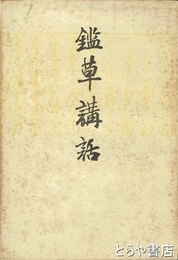 鑑草講話
とらや書店